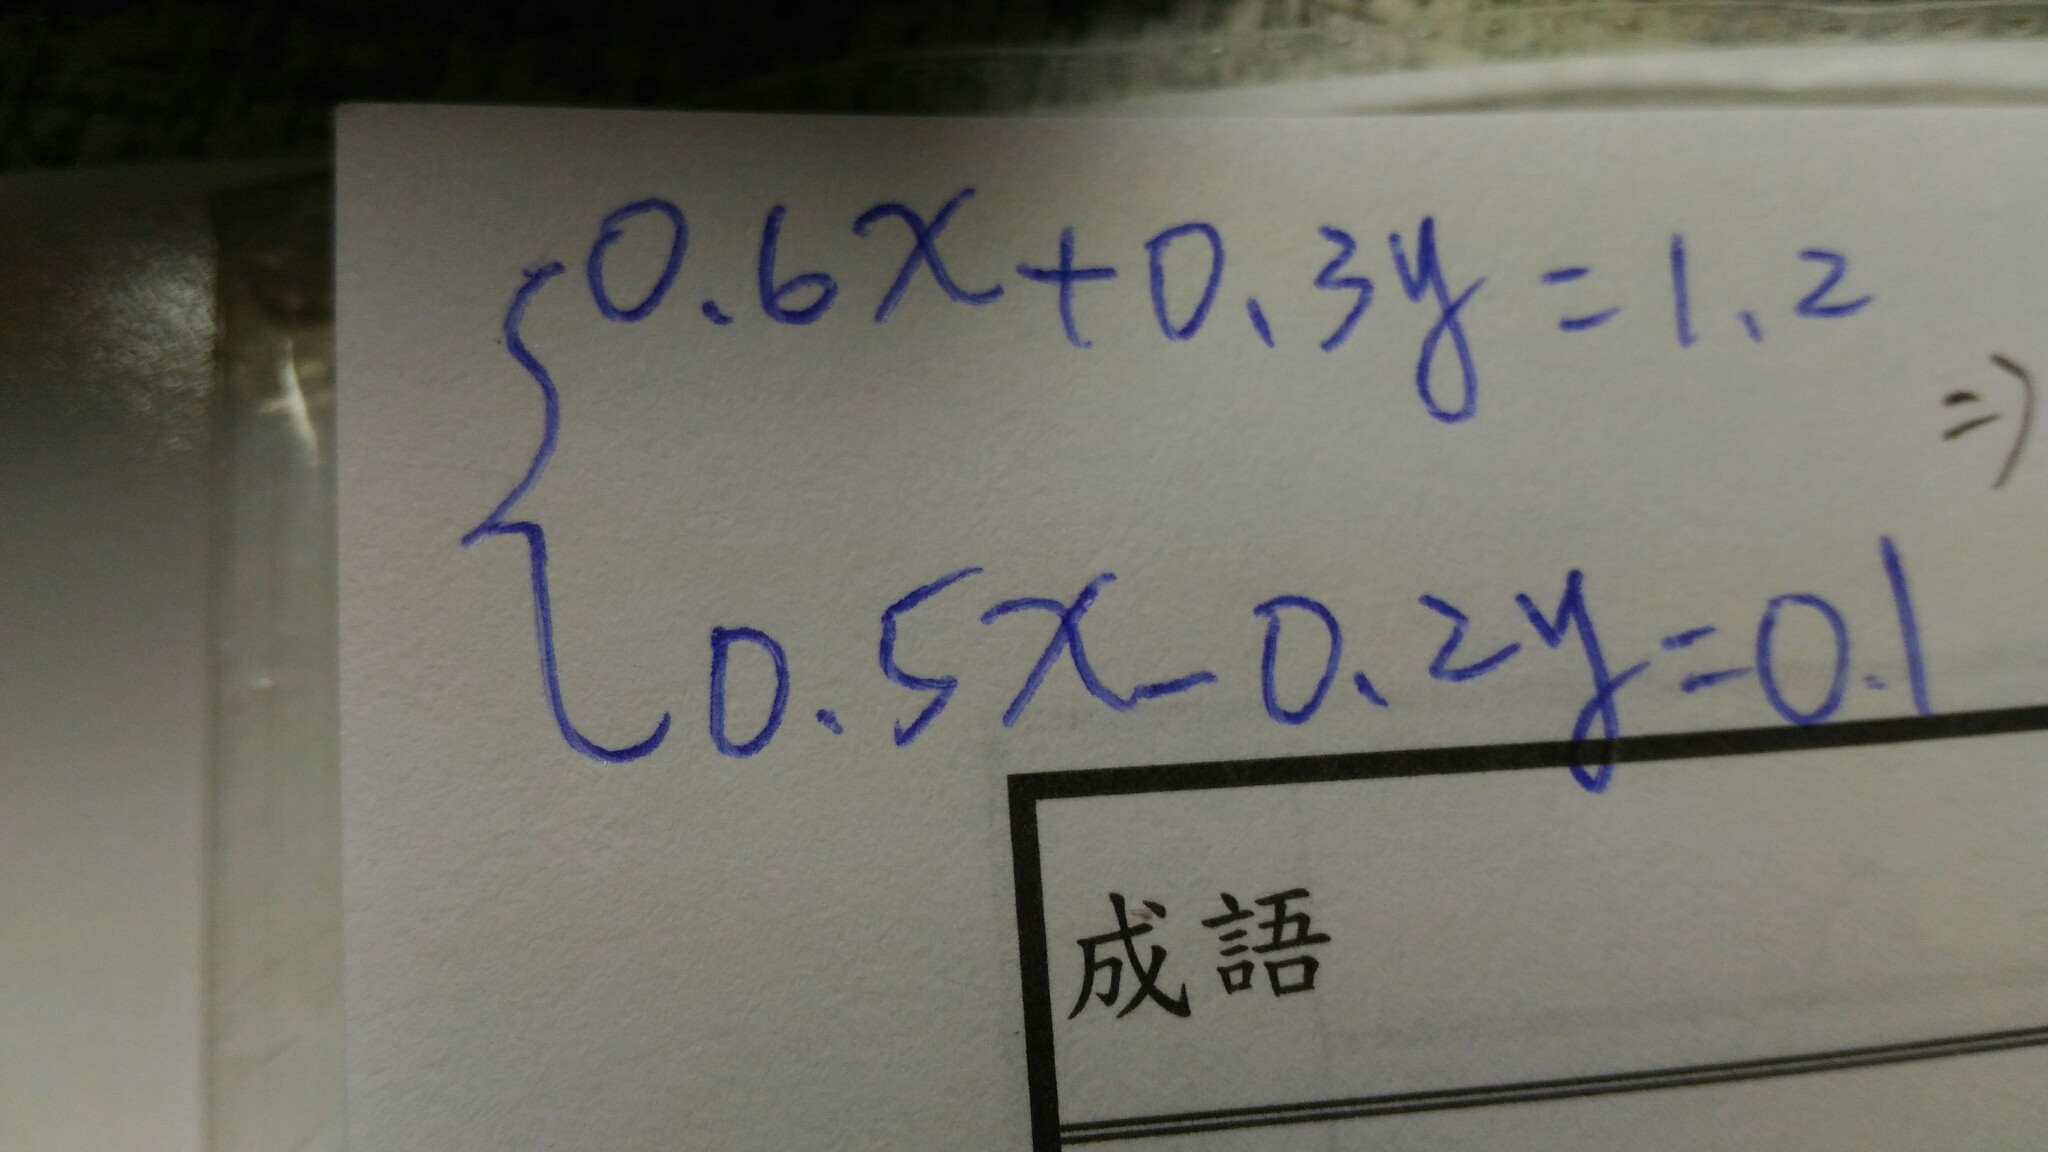 0.6x+0.3y=1.2
⇒
0.5x-0.2y=0.1
成語